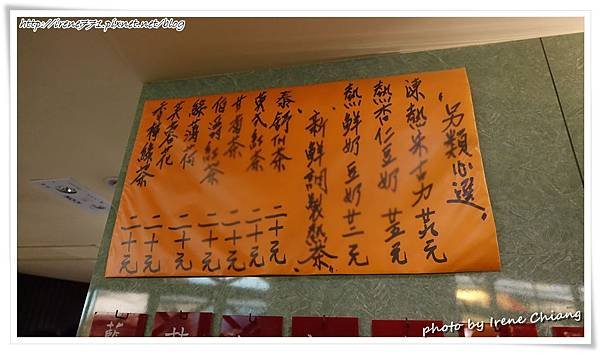 http://irene771.pixnet.net/blog
"另類必選"
凍熱朱古力 元
熱杏仁豆奶 廿五元
熱鮮奶豆奶 廿二元
"新鮮調製熱茶"
泰舒怡茶 二十元
東方紅茶 二十元
甘菊茶 二十元
伯爵紅茶 二十元
綠薄荷 二十元
芙蓉花 二十元
香檸綠茶 二十元
藍
photo by Irene Chiang